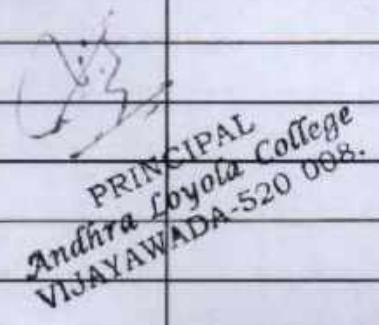 PRINCIPAL
Andhra Loyola College
VIJAYAWADA-520 008.